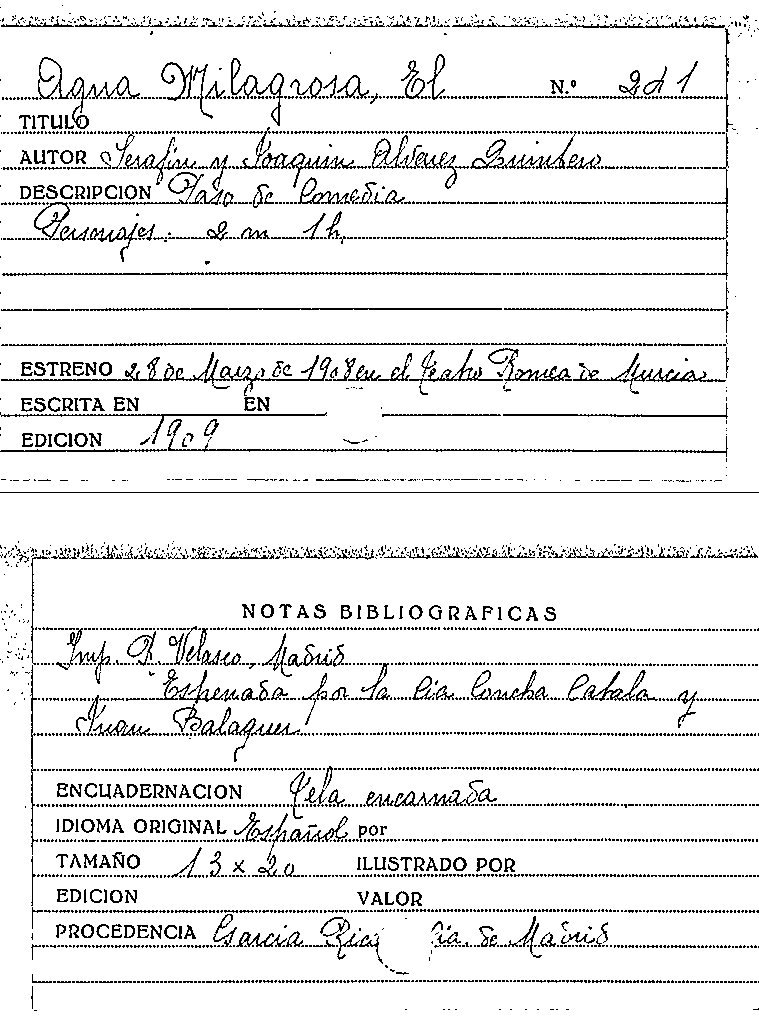 Agua Milagrosa, El N.º 2d1
TITULO
AUTOR Serafin y Joaquin Alvarez Quintero
DESCRIPCION Paso de Comedia
Personajes: 2 m 1 h.
ESTRENO 28 de Marzo de 1908 en el Teatro Romea de Murcia
ESCRITA EN EN
EDICION 1909
NOTAS BIBLIOGRAFICAS
Imp. R. Velasco, Madrid
Estrenada por la Cia Concha Catala y
Juan Balaguer
ENCUADERNACION Tela encarnada
IDIOMA ORIGINAL Español por
TAMAÑO 13 x 20 ILUSTRADO POR
EDICION VALOR
PROCEDENCIA Garcia Rico Cia. de Madrid